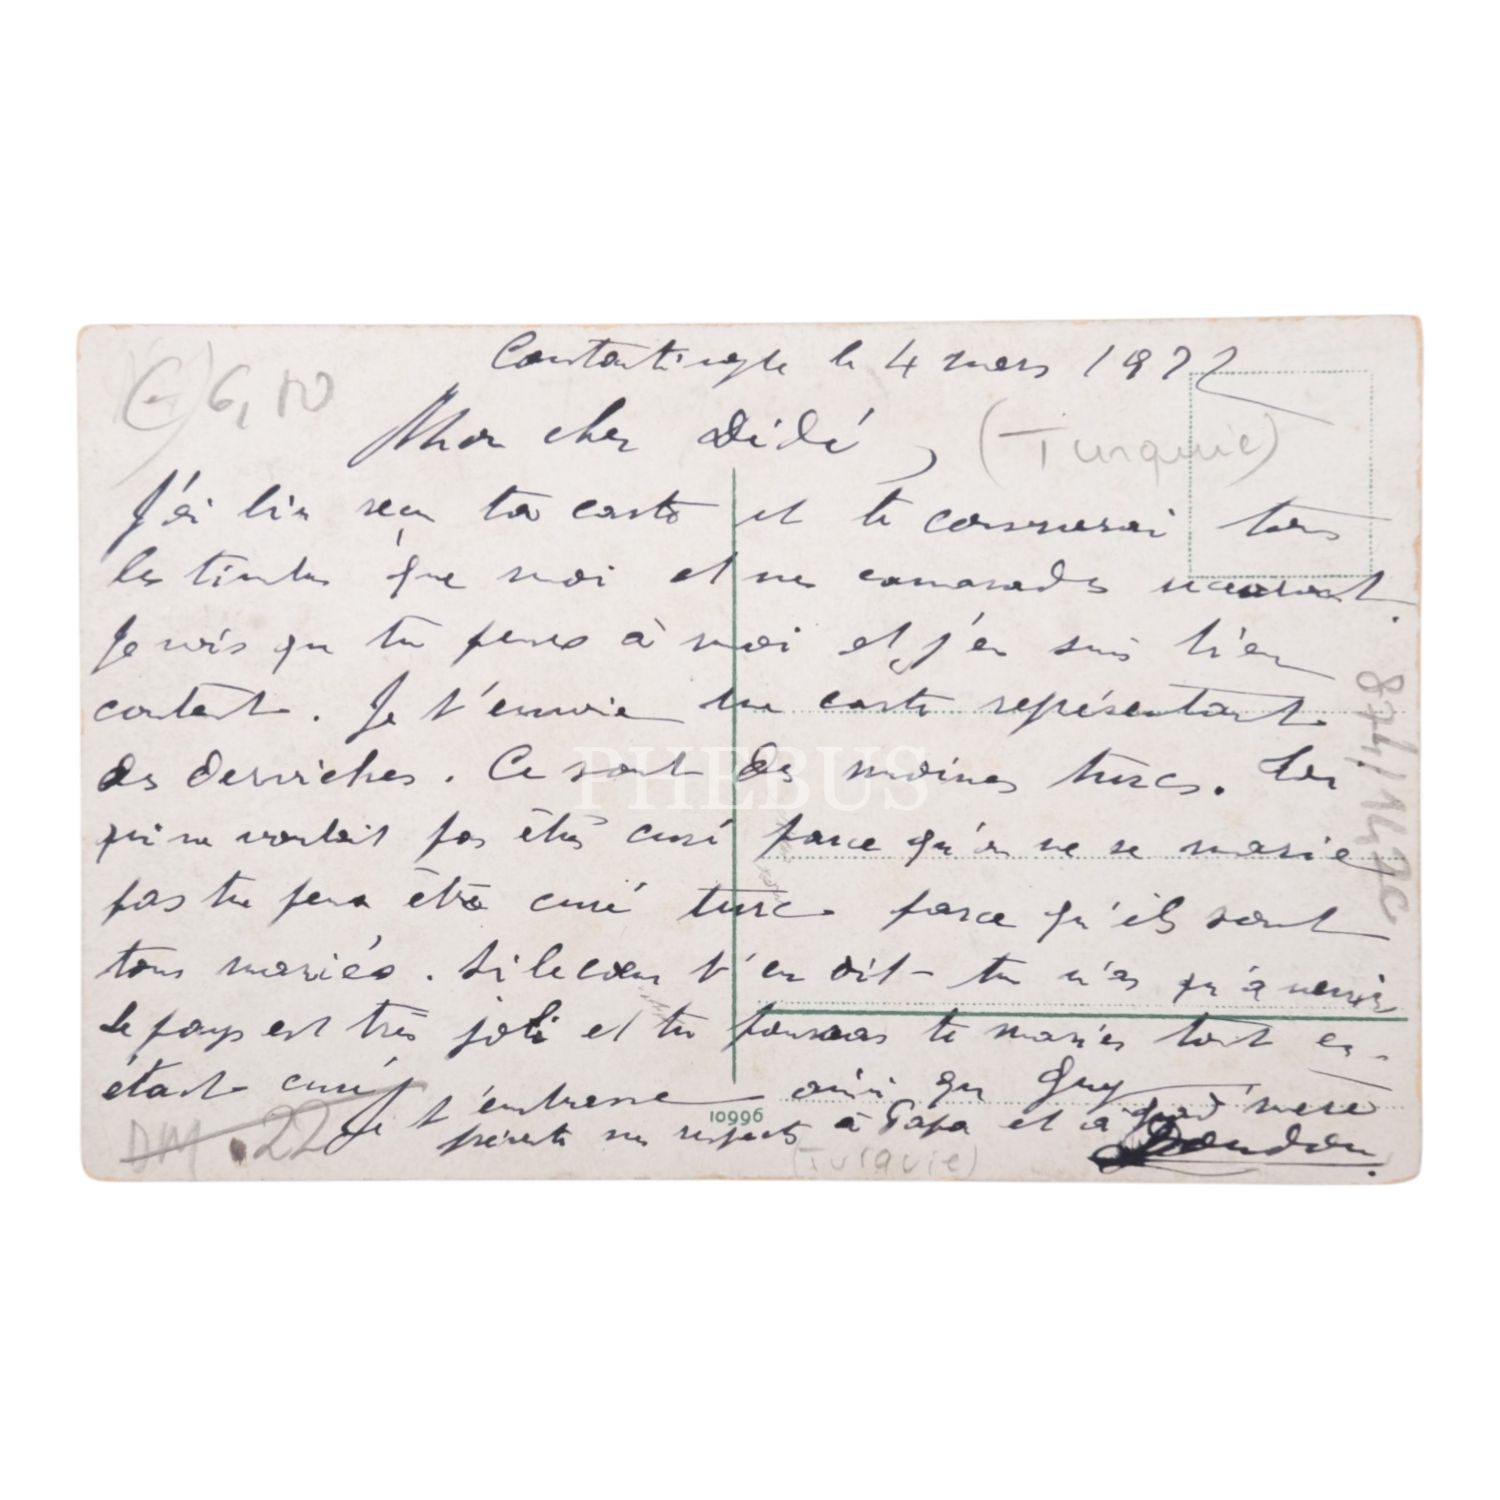 Constantinople le 4 mars 1922
6,10
Mon cher Dédé,
(Turquie)
J'ai bien reçu ta carte et te conserverai tous
les timbres que moi et mes camarades recevront.
Je vois que tu penses à moi et j'en suis bien
content. Je t'envoie une carte représentant
des derviches. Ce sont des moines turcs. Toi
qui ne voulait pas être curé parce qu'on ne se marie
pas tu peux être curé turc parce qu'ils sont
tous mariés. Si le cœur t'en dit tu n'as qu'à venir
Le pays est très joli et tu pourras te marier tout en
étant curé Je t'embrasse ainsi que Guy
présente mes respects à Papa et à grand'mère
Doudou.
DM 22
(Turquie)
10996
PHEBUS